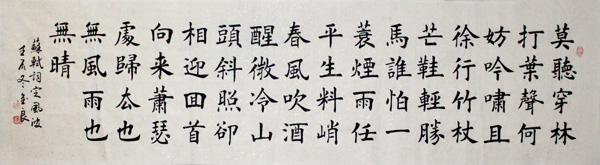 莫聽穿林
打葉聲何
妨吟嘯且
徐行竹杖
芒鞋輕勝
馬誰怕一
蓑煙雨任
平生料峭
春風吹酒
醒微冷山
頭斜照卻
相迎回首
向来蕭瑟
處歸厺也
無風雨也
無晴
蘇軾詞定風波
冬